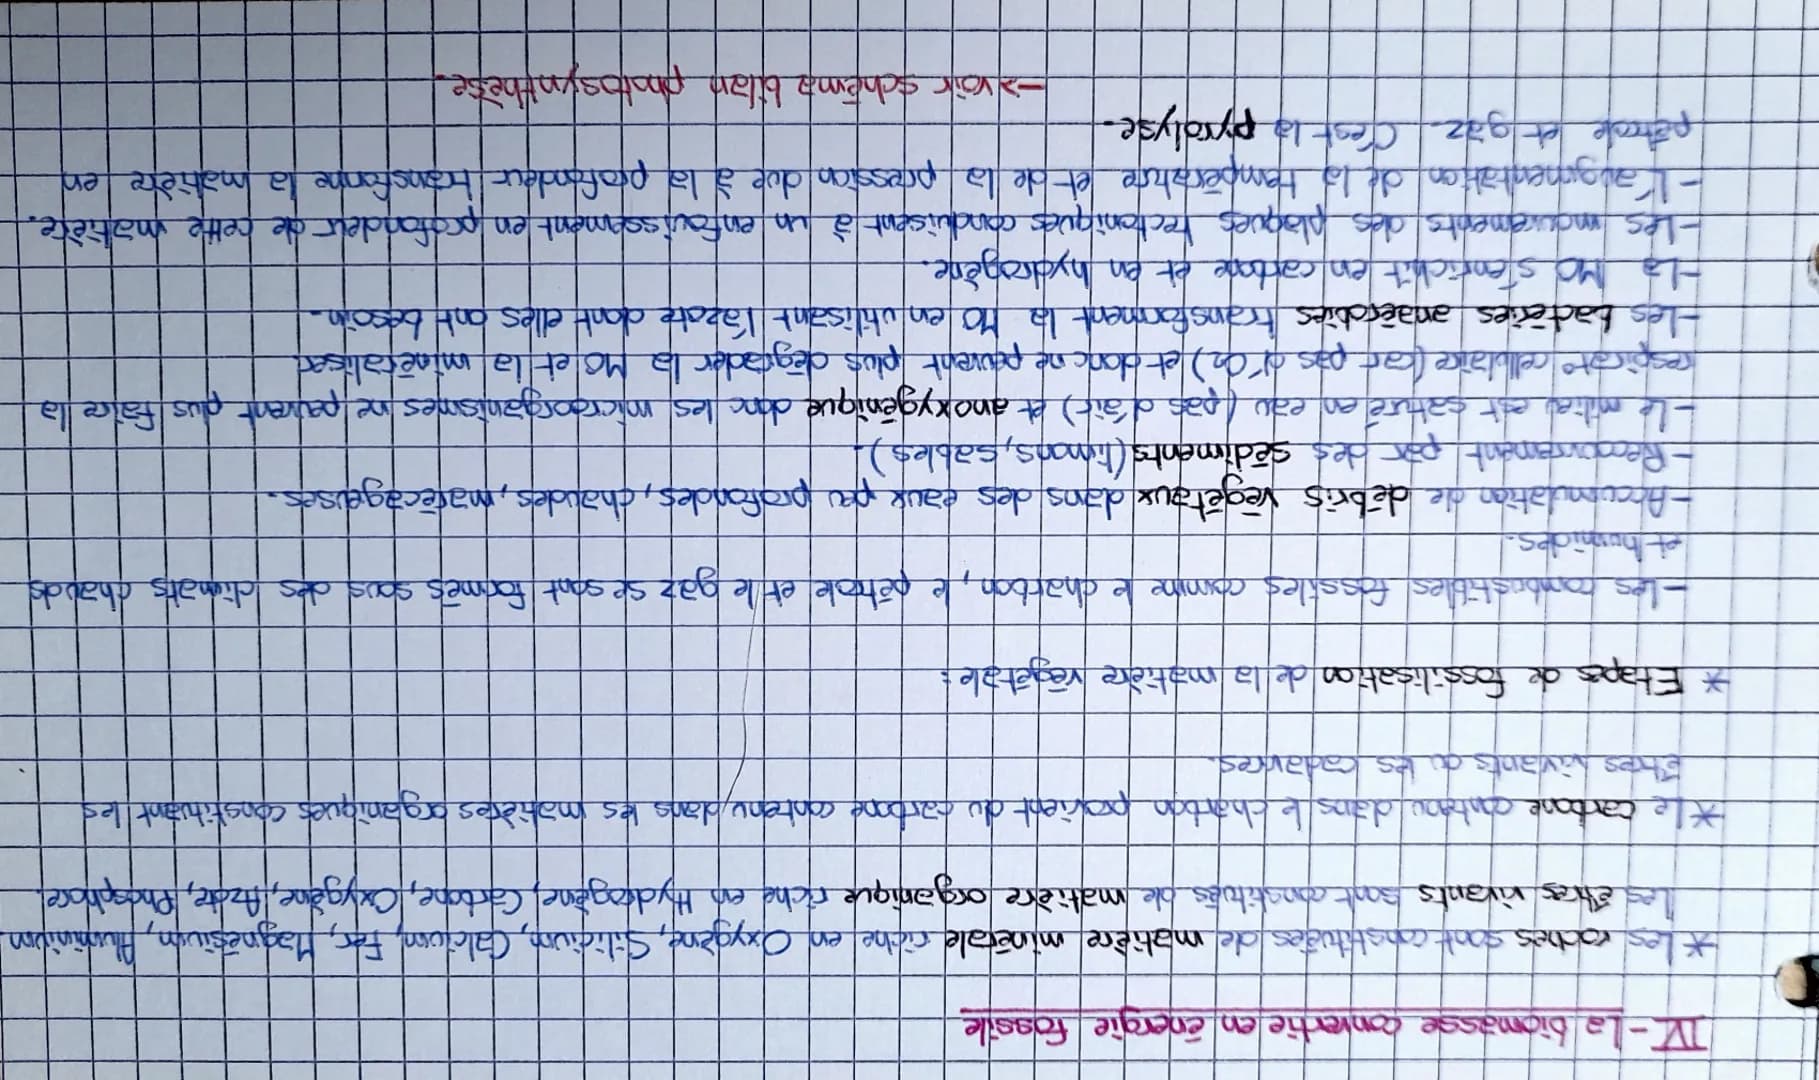 IV - La biomasse convertie en énergie fossile
* Les roches sont constituées de matière minérale riche en Oxygène, Silicium, Calcium, Fer, Magnésium, Aluminium
Les êtres vivants sont constitués de matière organique riche en Hydrogène, Carbone, Oxygène, Azote, Phosphore.
* Le carbone contenu dans le charbon provient du carbone contenu dans les matières organiques constituant les
êtres vivants ou les cadavres.
* Etapes de fossilisation de la matière végétale :
- Les combustibles fossiles comme le charbon, le pétrole et le gaz se sont formés sous des climats chauds
et humides.
- Accumulation de débris végétaux dans des eaux peu profondes, chaudes, marécageuses.
- Recouvrement par des sédiments (limons, sables).
- Le milieu est saturé en eau (pas d'air) et anoxygénique donc les microorganismes ne peuvent plus faire la
respirat° cellulaire (car pas d'O2) et donc ne peuvent plus dégrader la MO et la minéraliser.
- Les bactéries anaérobies transforment la MO en utilisant l'azote dont elles ont besoin.
- La MO s'enrichit en carbone et en hydrogène.
- Les mouvements des plaques tectoniques conduisent à un enfouissement en profondeur de cette matière.
- L'augmentation de la température et de la pression due à la profondeur transforme la matière en
pétrole et gaz. C'est la pyrolyse.
-> voir schéma bilan photosynthèse.